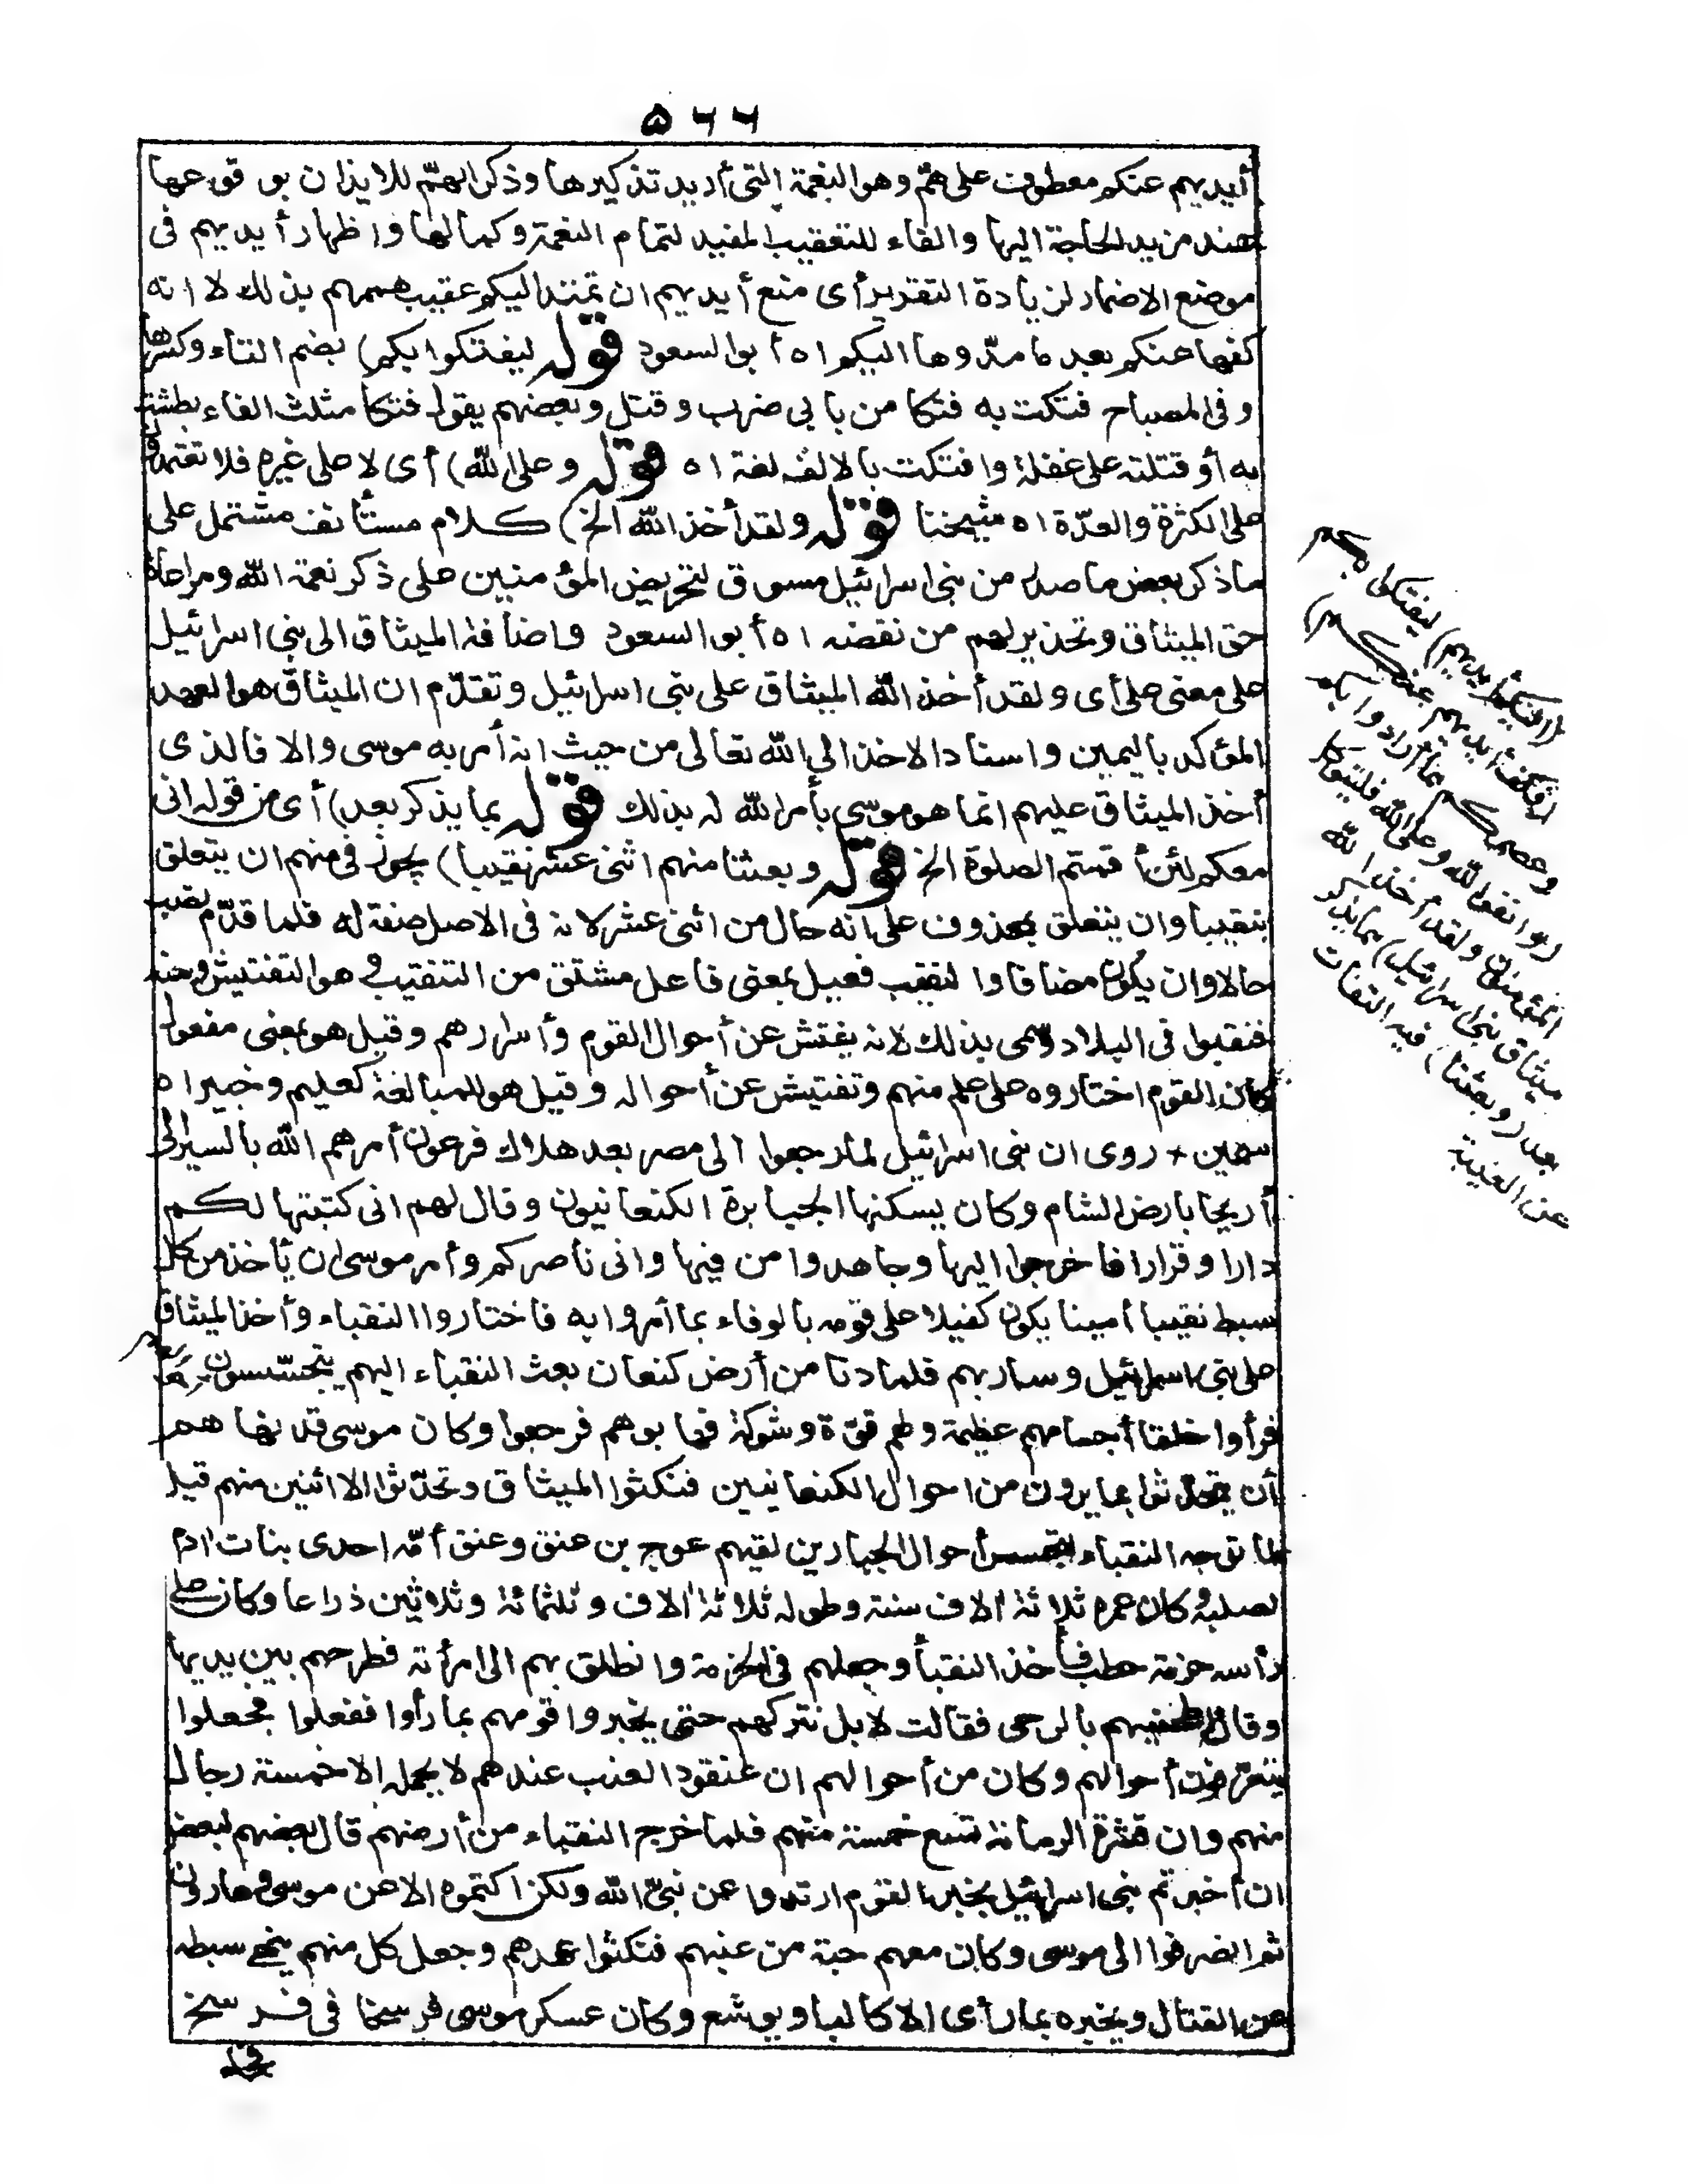 ٥٦٦
أيديهم عنكم معطوف على همّ وهو النعمة التى أريد تذكيرها وذكر الهمّ للايذان بوقوعها
عند مزيد الحاجة اليها والفاء للتعقيب المفيد لتمام النعمة وكمالها واظهار أيديهم فى
موضع الاضمار لزيادة التقرير أى منع أيديهم ان تمتد اليكم عقيب همهم بذلك لا انه
كفها عنكم بعد ما مدّوها اليكم اه أبو السعود قوله ليفتكوا بكم) بضم التاء وكسرها
وفى المصباح فتكت به فتكا من بابى ضرب وقتل وبعضهم يقول فتكا مثلث الفاء بطشت
به أو قتلته على غفلة وافتكت بالالف لغة اه قوله وعلى الله) أى لا على غيره فلا تعتمدوا
على الكثرة والعدّة اه شيخنا قوله ولقد أخذ الله الخ) كلام مستأنف مشتمل على
ما ذكر بعض ما صدر من بنى اسرائيل مسوق لتحريض المؤمنين على ذكر نعمة الله ومراعاة
حق الميثاق وتحذيرلهم من نقضه اه أبو السعود واضافة الميثاق الى بنى اسرائيل
على معنى على أى ولقد أخذ الله الميثاق على بنى اسرائيل وتقدّم ان الميثاق هو العهد
المؤكد باليمين واسناد الاخذ الى الله تعالى من حيث انه أمر به موسى والا فالذى
أخذ الميثاق عليهم انما هو موسى بأمر الله له بذلك قوله بما يذكر بعد) أى من قوله انى
معكم لئن أقمتم الصلوة الخ قوله وبعثنا منهم اثنى عشر نقيبا) يجوز فى منهم ان يتعلق
بنقيبا وان يتعلق بمحذوف على انه حال من اثنى عشر لانه فى الاصل صفة له فلما قدّم نصب
حالا وان يكون مضافا والنقيب فعيل بمعنى فاعل مشتق من التنقيب وهو التفتيش ومنه
فنقبوا فى البلاد وسمى بذلك لانه يفتش عن أحوال القوم وأسرارهم وقيل هو بمعنى مفعول
كان القوم اختاروه على علم منهم وتفتيش عن أحواله وقيل هو للمبالغة كعليم وخبير اه
سمين + روى ان بنى اسرائيل لما رجعوا الى مصر بعد هلاك فرعون أمرهم الله بالسير الى
أريحا بارض الشام وكان يسكنها الجبابرة الكنعانيون وقال لهم انى كتبتها لكم
دارا وقرارا فاخرجوا اليها وجاهدوا من فيها وانى ناصركم وأمر موسى ان يأخذ من كل
سبط نقيبا أمينا يكون كفيلا على قومه بالوفاء بما أمروا به فاختاروا النقباء وأخذ الميثاق
على بنى اسرائيل وسار بهم فلما دنا من أرض كنعان بعث النقباء اليهم يتجسّسون
فرأوا خلقا أجسامهم عظيمة ولهم قوّة وشوكة فهابوهم فرجعوا وكان موسى قد نهاهم
أن يتحدّثوا بما يرون من احوال الكنعانيين فنكثوا الميثاق وتحدّثوا الا اثنين منهم قيل
لما توجه النقباء لتجسس أحوال الجبارين لقيهم عوج بن عنق وعنق أمّه احدى بنات ادم
لصلبه وكان عمره ثلاثة الاف سنة وطوله ثلاثة الاف وثلثمائة وثلاثين ذراعا وكان على
رأسه حزمة حطب فأخذ النقبأ وجعلهم فى الحزمة وانطلق بهم الى امرأته فطرحهم بين يديها
وقال اطحنيهم بالرحى فقالت لا بل نتركهم حتى يخبروا قومهم بما رأوا ففعلوا فجعلوا
يتعرّفون أحوالهم وكان من أحوالهم ان عنقود العنب عندهم لا يحمله الا خمسة رجال
منهم وان قشرة الرمانة تسع خمسة منهم فلما خرج النقباء من أرضهم قال بعضهم لبعض
ان أخبرتم بنى اسرائيل بخبر القوم ارتدوا عن نبىّ الله ولكن اكتموه الا عن موسى وهارون
ثم انصرفوا الى موسى وكان معهم حبة من عنبهم فنكثوا عهدهم وجعل كل منهم ينهى سبطه
عن القتال ويخبره بما رأى الا كالبا ويوشع وكان عسكر موسى فرسخا فى فرسخ
(اليكم أيديهم) ليفتكوا بكم
(فكف أيديهم عنكم)
وعصمكم مما أرادوا بكم
(واتقوا الله وعلى الله فليتوكل
المؤمنون ولقد أخذ الله
ميثاق بنى اسرائيل) بما يذكر
بعد (وبعثنا) فيه التفات
عن الغيبة